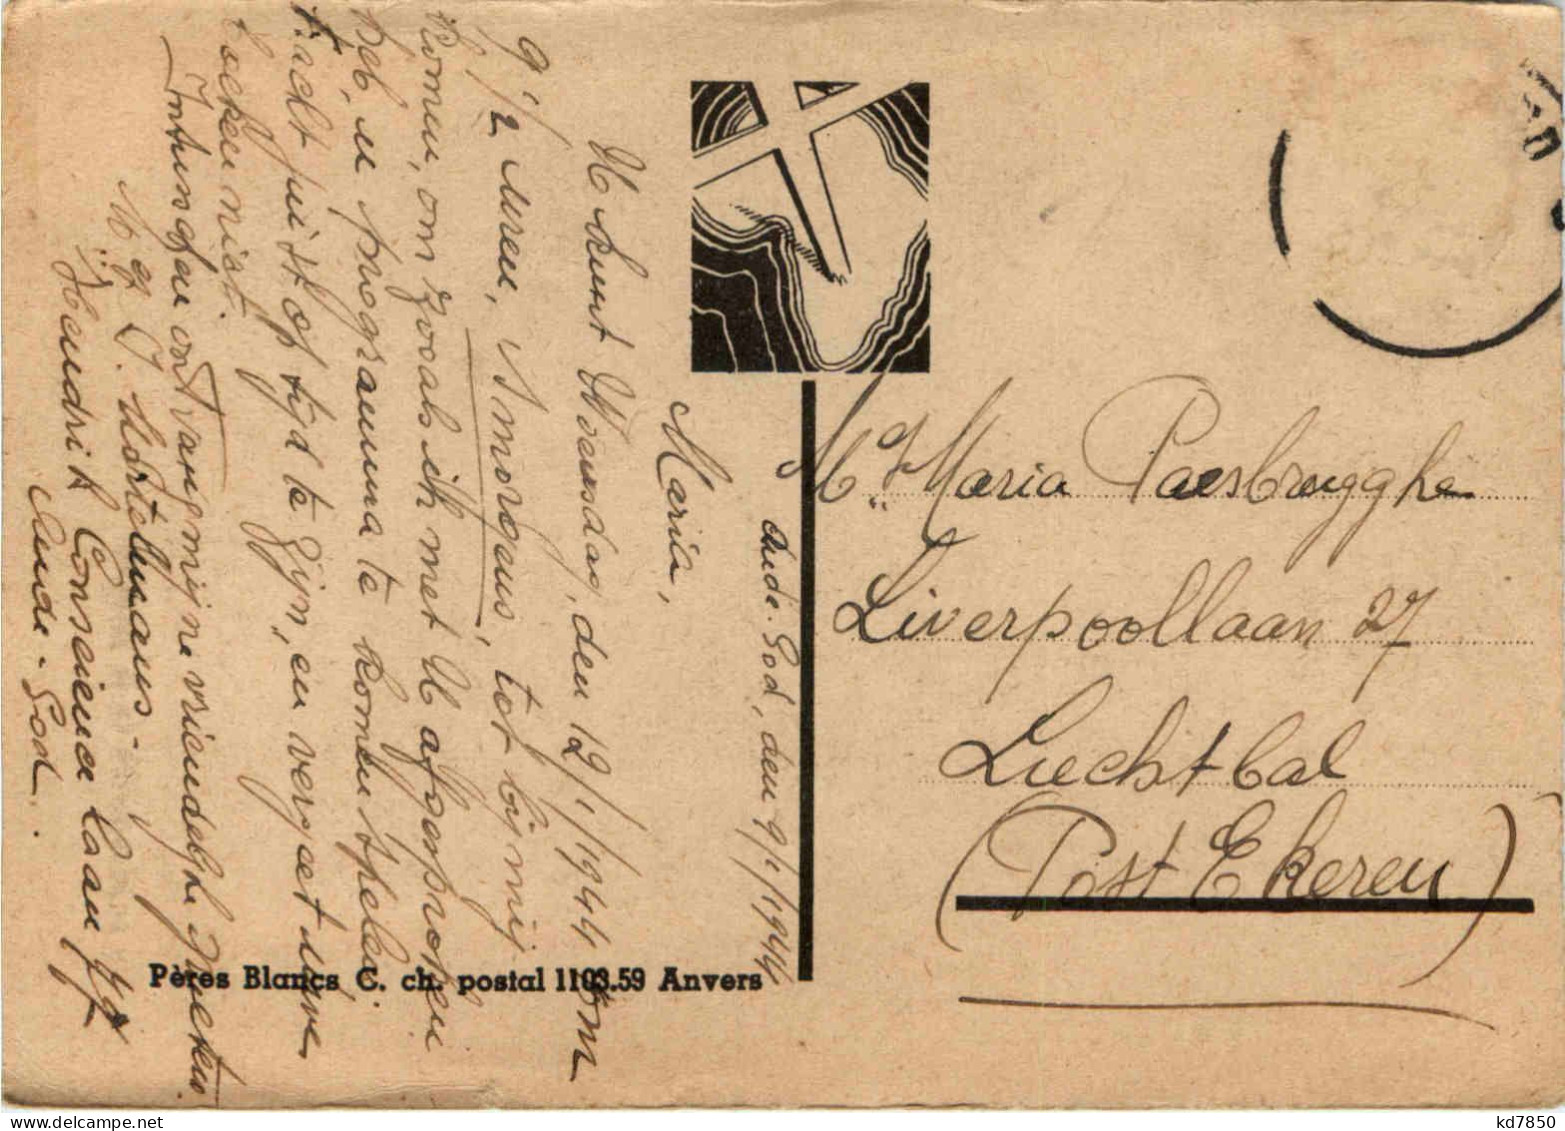 Oude-God, den 9/1/1944
Maria,
U kunt Woensdag, den 12/1/1944 om
9 1/2 uren, 's morgens, tot bij mij
komen, om zooals ik met U afgesproken
heb, u programma te komen spelen.
Tracht juist op tijd te zijn, en vergeet uwe
boeken niet.
Intusschen ontvang mijne vriendelijke groeten.
Mej. J. Mortelmans-
Hendrik Conscience laan 77
Oude-God.
Mej. Maria Paesbrugghe
Liverpoollaan 27
Luchtbal
(Post Ekeren)
Pères Blancs C. ch. postal 1103.59 Anvers
kd7850